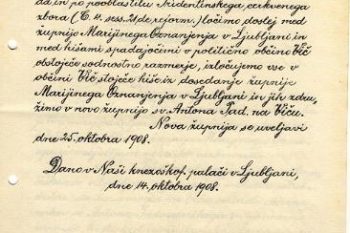 da in po pooblastilu Tridentinskega cerkvenega
zbora C. 4. sess. 21. de reform. ločimo doslej med
župnijo Marijinega Oznanjenja v Ljubljani in
med hišami spadajočimi v politično občino Vič
obstoječe sodnostno razmerje, izločujemo vse v
občini Vič stoječe hiše iz dosedanje župnije
Marijinega Oznanjenja v Ljubljani in jih zdru,
žimo v novo župnijo sv. Antona Pad. na Viču.
Nova župnija se uveljavi
dne 25. oktobra 1908.
Dano v Naši knezoškof. palači v Ljubljani,
dne 14. oktobra 1908.